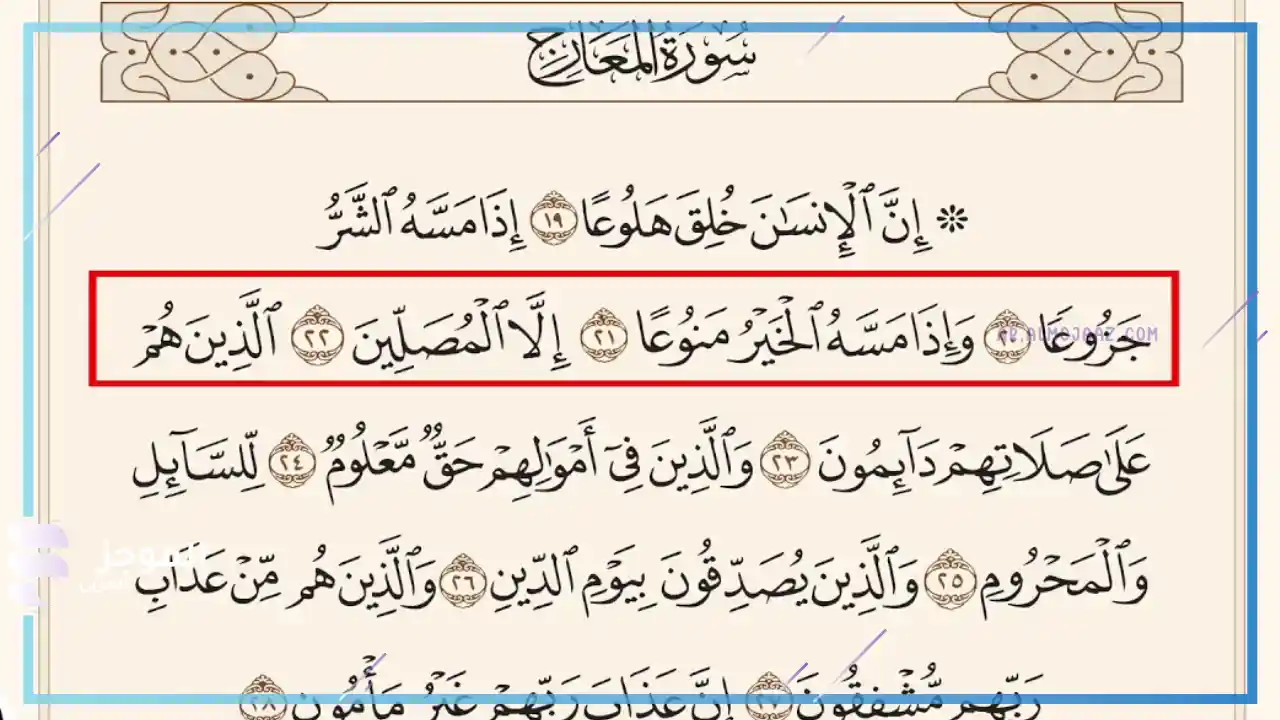 سُورَةُ المَعَارِجِ
۞ إِنَّ ٱلْإِنسَٰنَ خُلِقَ هَلُوعًا ١٩ إِذَا مَسَّهُ ٱلشَّرُّ
جَزُوعًا ٢٠ وَإِذَا مَسَّهُ ٱلْخَيْرُ مَنُوعًا ٢١ إِلَّا ٱلْمُصَلِّينَ ٢٢ ٱلَّذِينَ هُمْ
AR.ALMOJAAZ.COM
عَلَىٰ صَلَاتِهِمْ دَآئِمُونَ ٢٣ وَٱلَّذِينَ فِىٓ أَمْوَٰلِهِمْ حَقٌّ مَّعْلُومٌ ٢٤ لِّلسَّآئِلِ
وَٱلْمَحْرُومِ ٢٥ وَٱلَّذِينَ يُصَدِّقُونَ بِيَوْمِ ٱلدِّينِ ٢٦ وَٱلَّذِينَ هُم مِّنْ عَذَابِ
الموجز
رَبِّهِم مُّشْفِقُونَ ٢٧ إِنَّ عَذَابَ رَبِّهِمْ غَيْرُ مَأْمُونٍ ٢٨